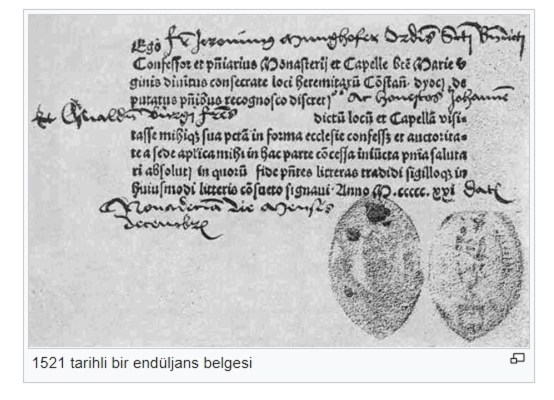 Ego fr Jeronimus Munghofer Ordis Scti Bndicti
Confessor et pñiarius Monasterij et Capelle btē Marie v
ginis diuītus consecrate loci heremitarū Cōstañ. dyoc̄. de
putatus pñibus recognosco discret honestos Johannē
et Oswaldū fres dictū locū et Capellā visi-
tasse mihiqs sua pctā in forma ecclesie confess et auctorita-
te a sede aplica mihi in hac parte cōcessa iniūcta pñia saluta
ri absolut in quorū fide pñtes litteras tradidi sigilloqs in
huiusmodi litteris cōsueto signaui. Anno M.ccccc. xxi dat
Nonadecima die Mensis
decembr
1521 tarihli bir endüljans belgesi